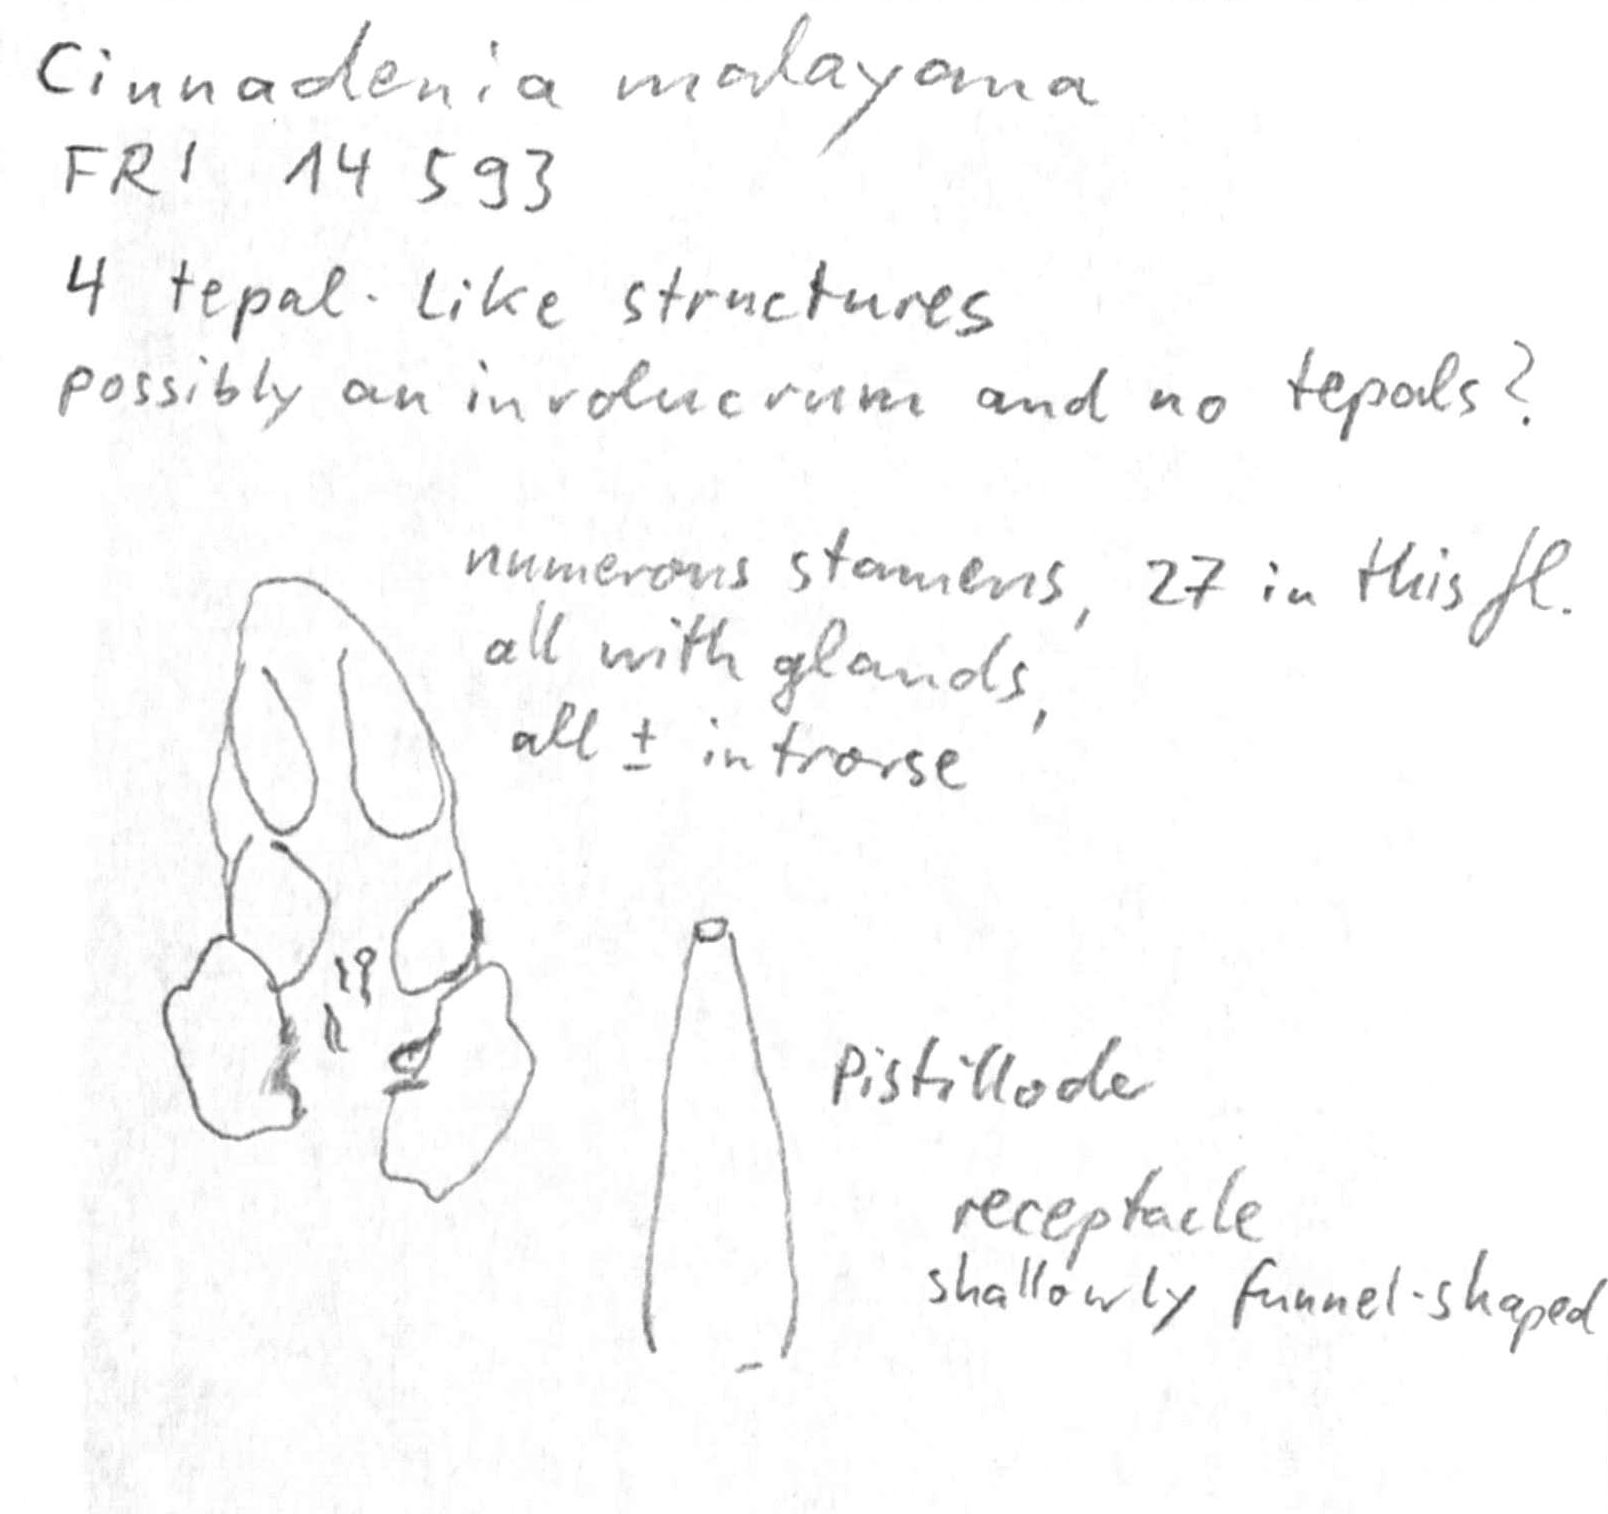 Cinnadenia malayana
FRI 14 593
4 tepal-like structures
possibly an involucrum and no tepals?
numerous stamens, 27 in this fl.
all with glands,
all ± introrse
Pistillode
receptacle
shallowly funnel-shaped